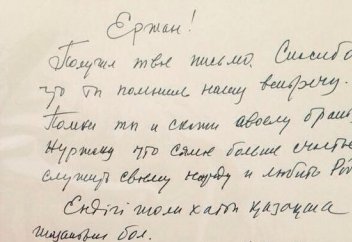 Ержан!
Получил твоё письмо. Спасибо
что ты помнишь нашу встречу.
Помни ты и скажи своему брату
Нуржану что самое больше счастье
служить своему народу и любить Род
Ендігі жолы хатты қазақша
жазатын бол.